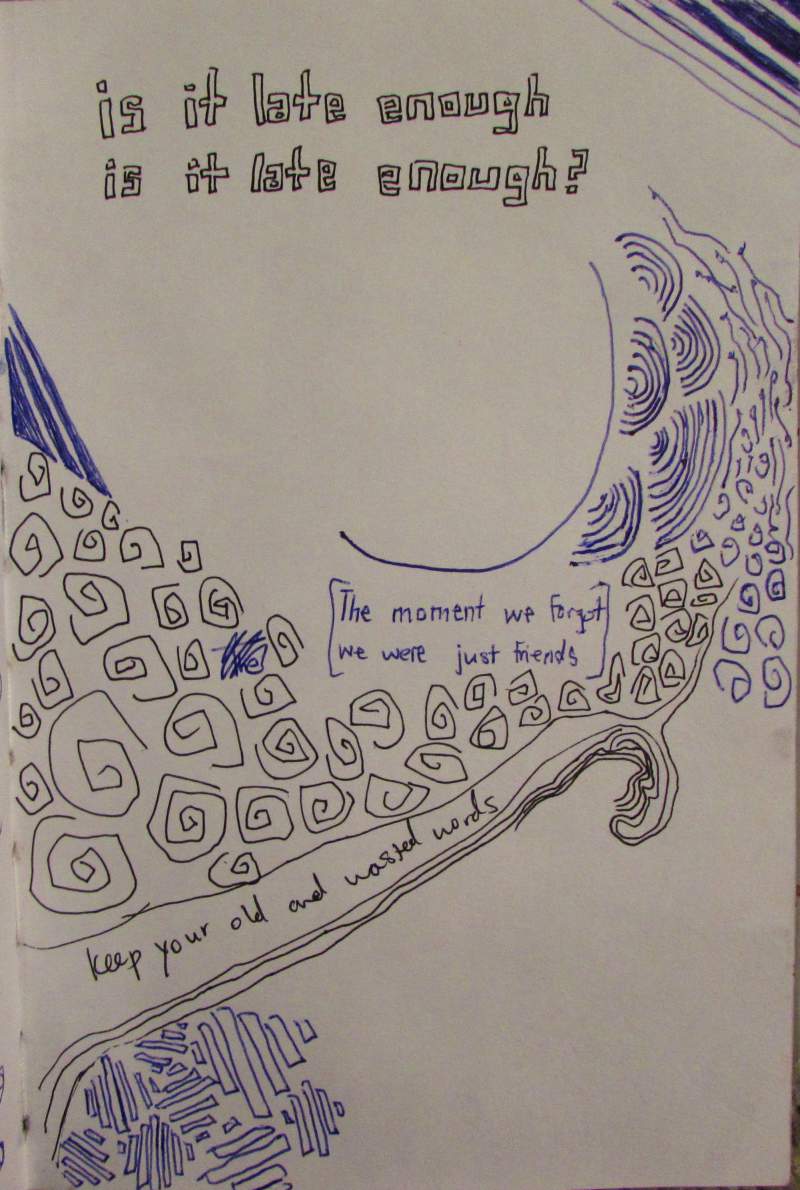 is it late enough
is it late enough?
[The moment we forgot
we were just friends]
keep your old and wasted words